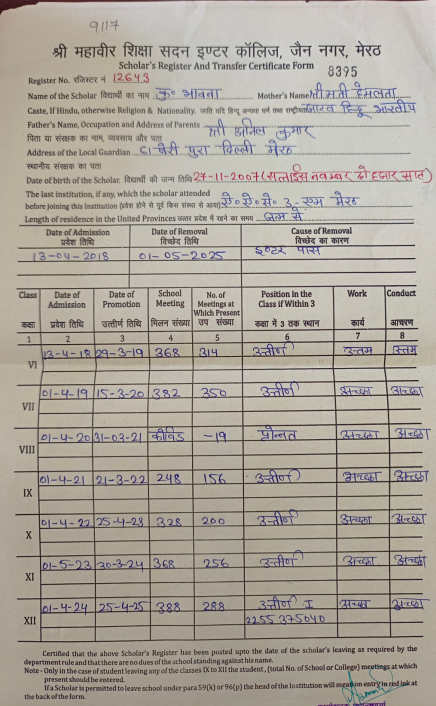 9117
श्री महावीर शिक्षा सदन इण्टर कॉलिज, जैन नगर, मेरठ
Scholar's Register And Transfer Certificate Form
8395
Register No. रजिस्टर नं 12643
Name of the Scholar विद्यार्थी का नाम कु० भावना Mother's Name श्रीमती हेमलता
Caste, If Hindu, otherwise Religion & Nationality. जाति यदि हिन्दू अन्यथा धर्म तथा राष्ट्रीयता हिन्दू भारतीय
Father's Name, Occupation and Address of Parents श्री कुमार
पिता या संरक्षक का नाम, व्यवसाय और पता
Address of the Local Guardian पुरा दिल्ली मेरठ
स्थानीय संरक्षक का पता
Date of birth of the Scholar. विद्यार्थी की जन्म तिथि 27-11-2007 (सत्ताईस नवम्बर दो हजार सात)
The last institution, if any, which the scholar attended
before joining this Institution (प्रवेश होने से पूर्व किस संस्था से आया) मेरठ
Length of residence in the United Provinces उत्तर प्रदेश में रहने का समय जन्म से
Date of Admission Date of Removal Cause of Removal
प्रवेश तिथि विच्छेद तिथि विच्छेद का कारण
13-04-2018 01-05-2025 इण्टर पास
Class Date of Admission Date of Promotion School Meeting No. of Meetings at Which Present Position in the Class if Within 3 Work Conduct
कक्षा प्रवेश तिथि उत्तीर्ण तिथि मिलन संख्या उप संख्या कक्षा में 3 तक स्थान कार्य आचरण
1 2 3 4 5 6 7 8
VI 13-4-18 29-3-19 368 314 उत्तीर्ण उत्तम उत्तम
VII 01-4-19 15-3-20 382 350 उत्तीर्ण अच्छा अच्छा
VIII 01-4-20 31-03-21 कोविड -19 प्रोन्नत अच्छा अच्छा
IX 01-4-21 21-3-22 248 156 उत्तीर्ण अच्छा अच्छा
X 01-4-22 25-4-23 328 200 उत्तीर्ण अच्छा अच्छा
XI 01-5-23 30-3-24 368 256 उत्तीर्ण अच्छा अच्छा
XII 01-4-24 25-4-25 388 288 उत्तीर्ण I अच्छा अच्छा
2255375040
Certified that the above Scholar's Register has been posted upto the date of the scholar's leaving as required by the
department rule and that there are no dues of the school standing against his name.
Note - Only in the case of student leaving any of the classes IX to XII the student, (total No. of School or College) meetings at which
present should be entered.
If a Scholar is permitted to leave school under para 59(k) or 96(p) the head of the Institution will mention entry in red ink at
the back of the form.